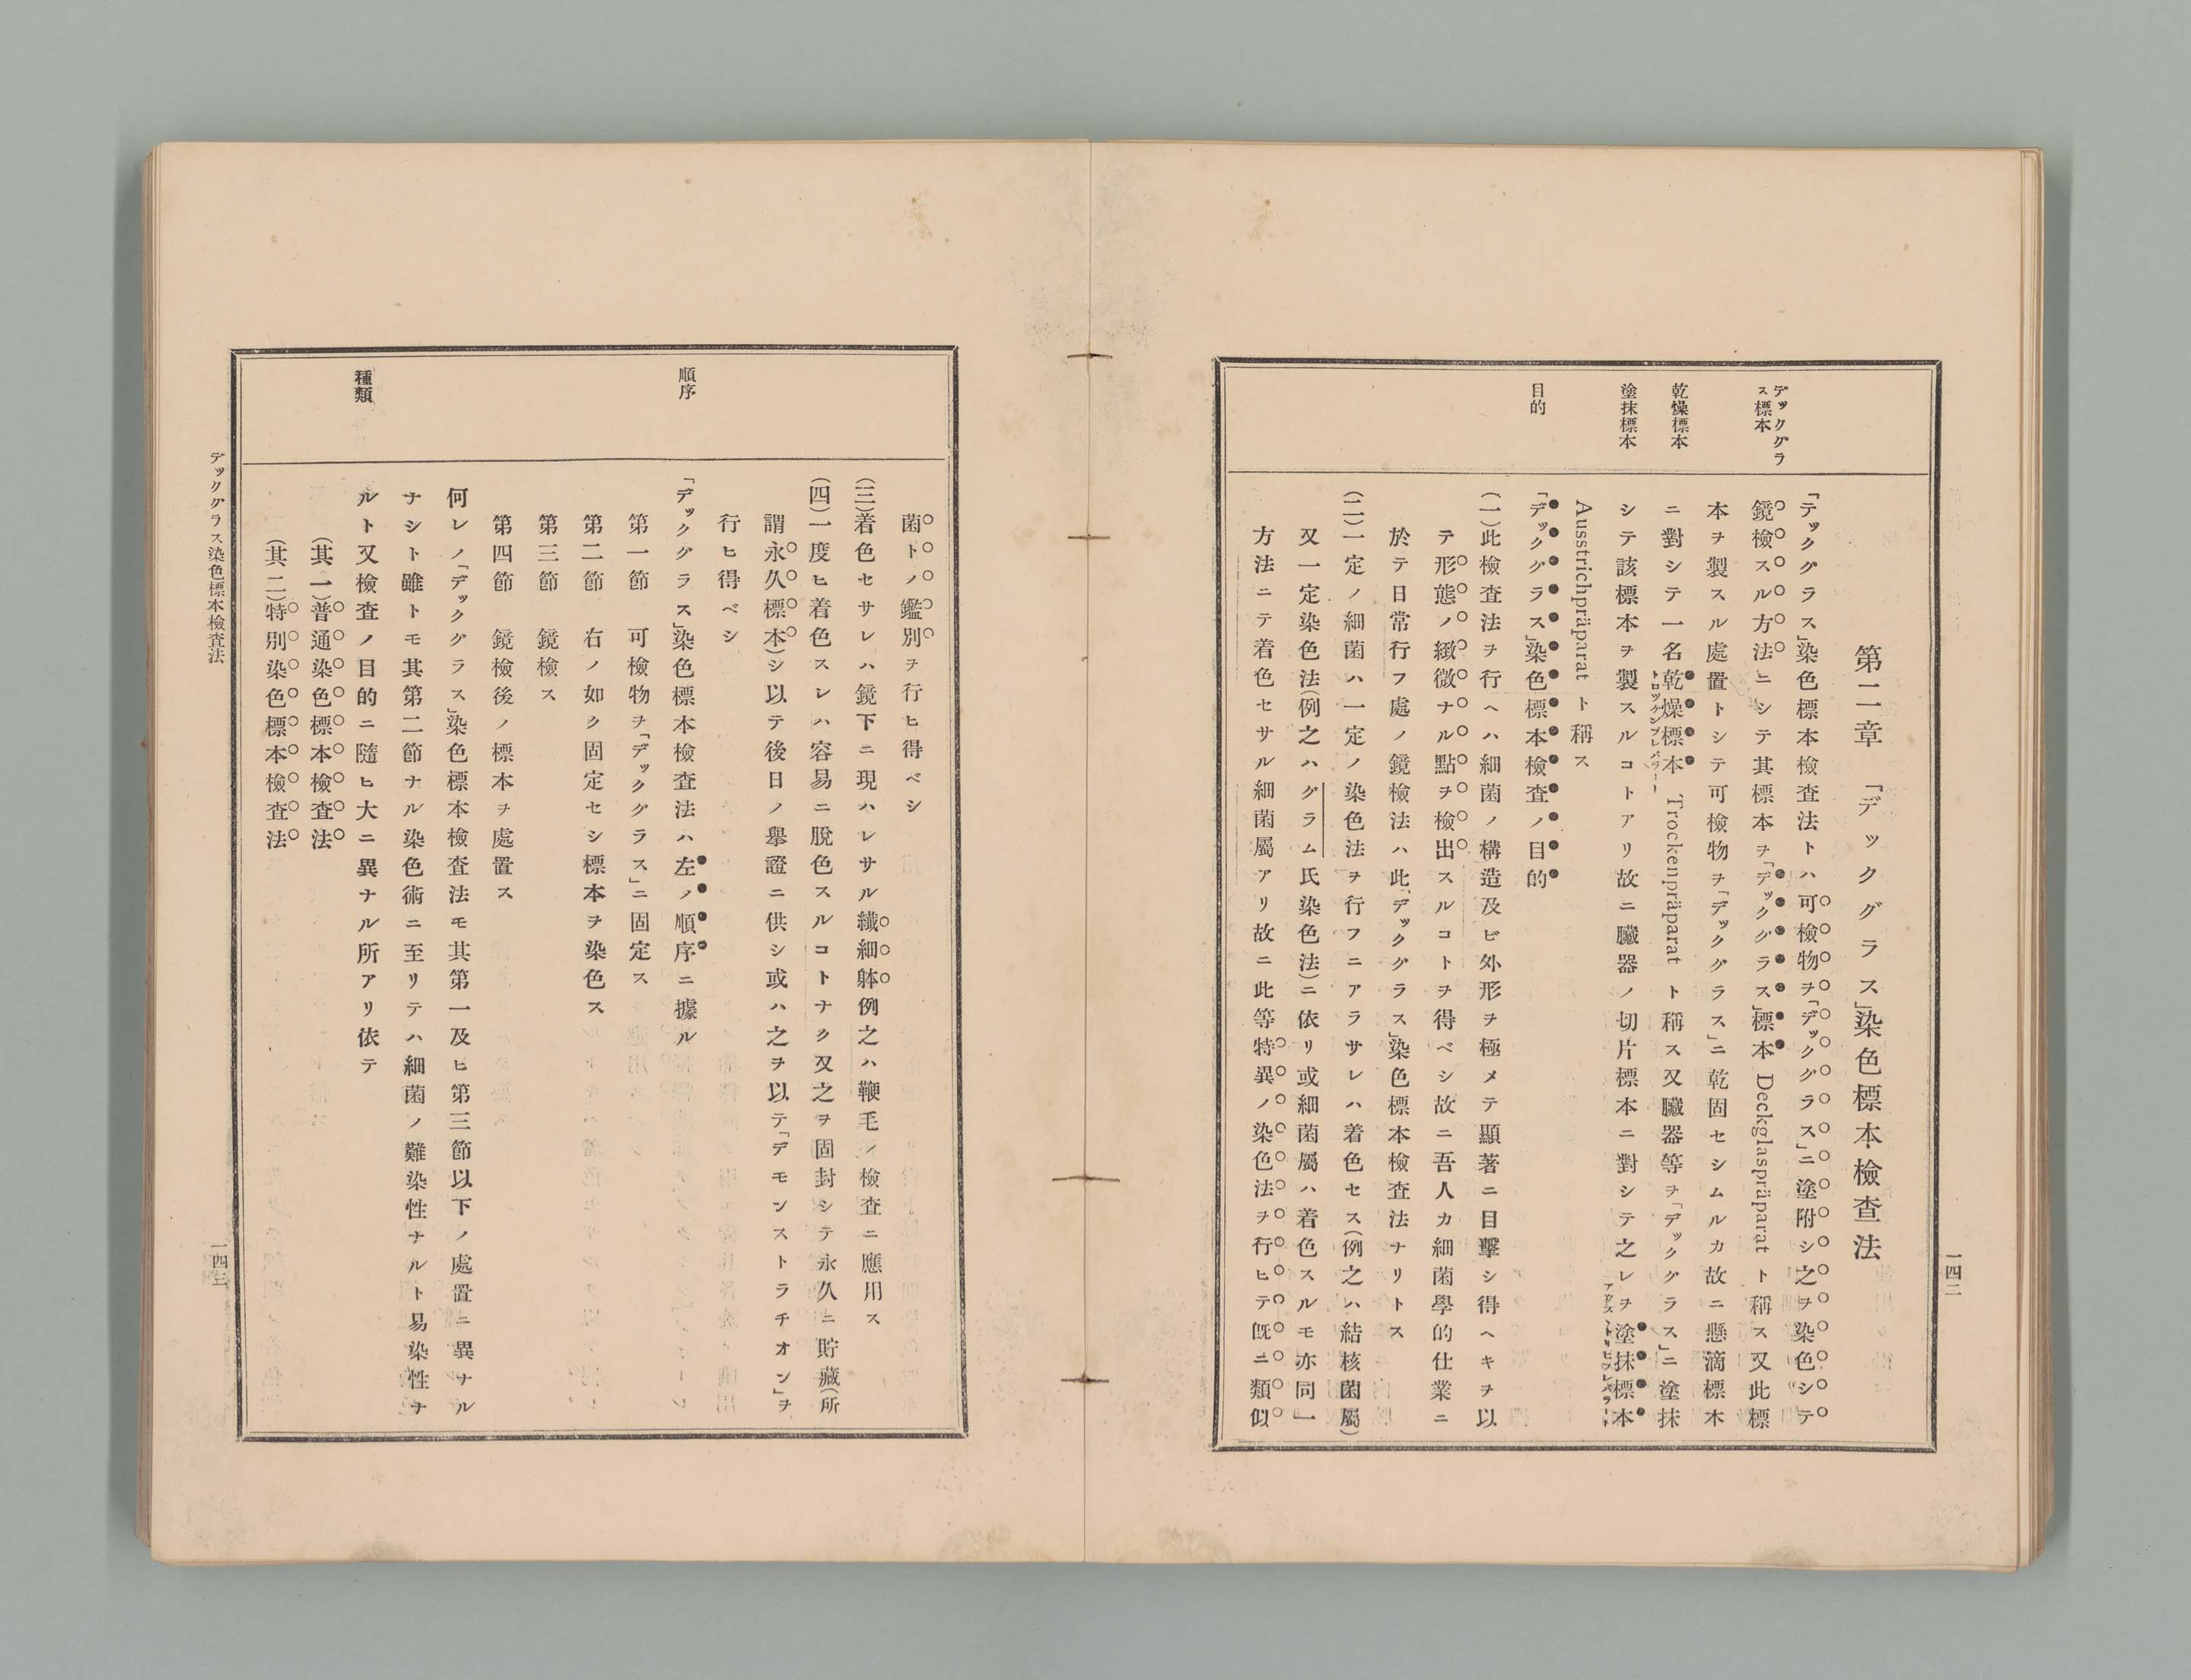 一四二
第二章　「デックグラス」染色標本檢査法
デックグラ
ス標本
「デックグラス」染色標本檢査法トハ可檢物ヲ「デックグラス」ニ塗附シ之ヲ染色シテ
鏡檢スル方法ニシテ其標本ヲ「デックグラス」標本 Deckglaspräparat ト稱ス又此標
本ヲ製スル處置トシテ可檢物ヲ「デックグラス」ニ乾固セシムルカ故ニ懸滴標木
乾燥標本
ニ對シテ一名乾燥標本 Trockenpräparat ト稱ス又臟器等ヲ「デックグラス」ニ塗抹
トロッケンプレパラート
塗抹標本
シテ該標本ヲ製スルコトアリ故ニ臟器ノ切片標本ニ對シテ之レヲ塗抹標本
Ausstrichpräparat ト稱ス
目的
「デックグラス」染色標本檢査ノ目的
(一)此檢査法ヲ行ヘハ細菌ノ構造及ビ外形ヲ極メテ顯著ニ目擊シ得ヘキヲ以
テ形態ノ緻微ナル點ヲ檢出スルコトヲ得ベシ故ニ吾人カ細菌學的仕業ニ
於テ日常行フ處ノ鏡檢法ハ此「デックグラス」染色標本檢査法ナリトス
(二)一定ノ細菌ハ一定ノ染色法ヲ行フニアラサレハ着色セス(例之ハ結核菌屬)
又一定染色法(例之ハグラム氏染色法)ニ依リ或細菌屬ハ着色スルモ亦同一
方法ニテ着色セサル細菌屬アリ故ニ此等特異ノ染色法ヲ行ヒテ旣ニ類似
菌トノ鑑別ヲ行ヒ得ベシ
(三)着色セサレハ鏡下ニ現ハレサル纎細躰例之ハ鞭毛ノ檢査ニ應用ス
(四)一度ヒ着色スレハ容易ニ脫色スルコトナク又之ヲ固封シテ永久ニ貯藏(所
謂永久標本)シ以テ後日ノ擧證ニ供シ或ハ之ヲ以テ「デモンストラチオン」ヲ
行ヒ得ベシ
順序
「デックグラス」染色標本檢査法ハ左ノ順序ニ據ル
第一節　可檢物ヲ「デックグラス」ニ固定ス
第二節　右ノ如ク固定セシ標本ヲ染色ス
第三節　鏡檢ス
第四節　鏡檢後ノ標本ヲ處置ス
何レノ「デックグラス」染色標本檢査法モ其第一及ヒ第三節以下ノ處置ニ異ナル
ナシト雖トモ其第二節ナル染色術ニ至リテハ細菌ノ難染性ナルト易染性ナ
種類
ルト又檢査ノ目的ニ隨ヒ大ニ異ナル所アリ依テ
(其一)普通染色標本檢査法
(其二)特別染色標本檢査法
デックグラス染色標本檢査法
一四三